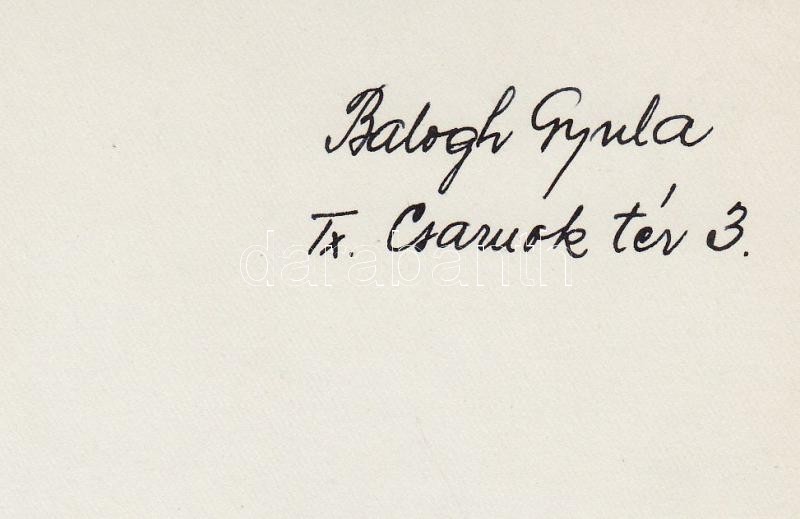 Balogh Gyula
IX. Csarnok tér 3.
darabanth